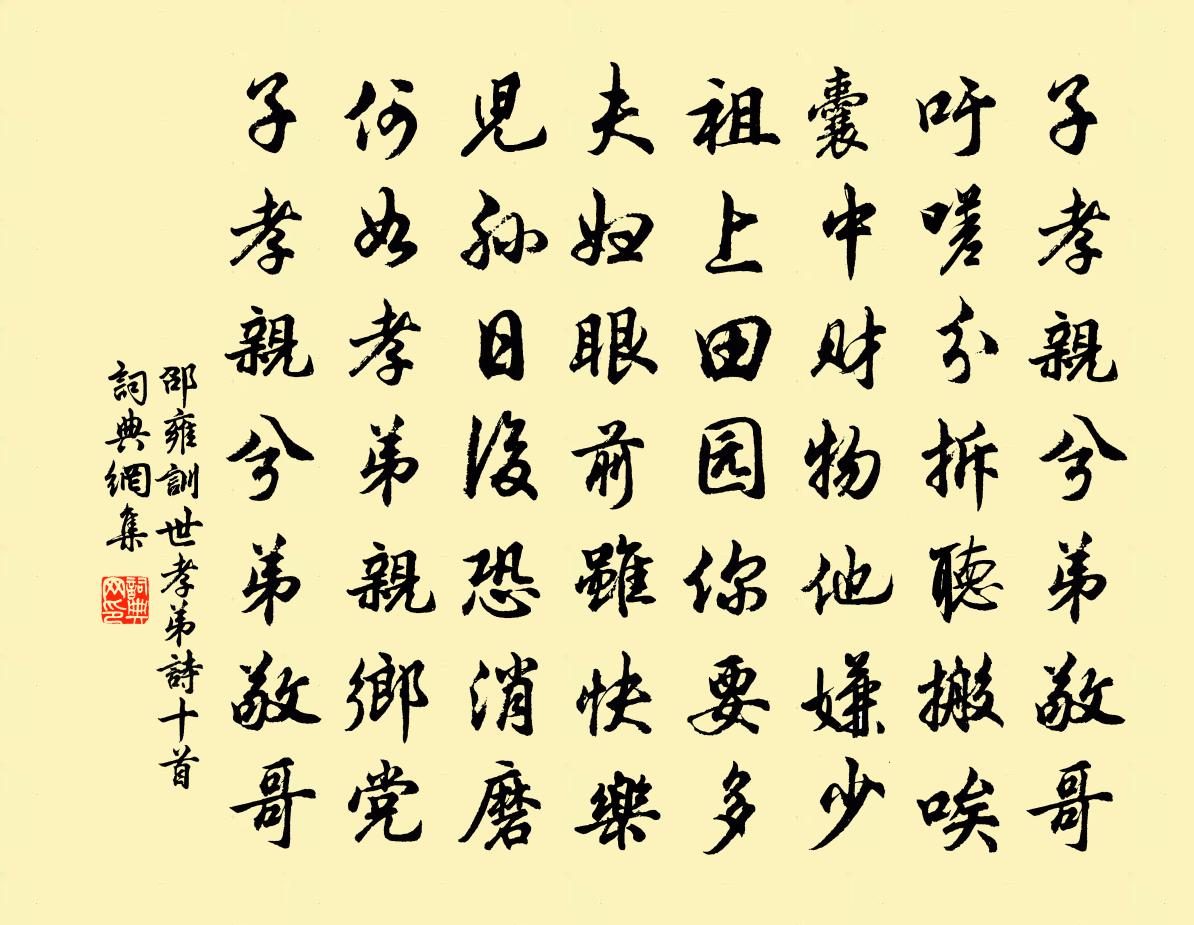 子孝親兮弟敬哥
吁嗟分拆聽搬唆
囊中财物他嫌少
祖上田园你要多
夫妇眼前雖快樂
児孙日後恐消磨
何如孝弟親鄉党
子孝親兮弟敬哥
邵雍訓世孝弟詩十首
詞典網集
詞典网印